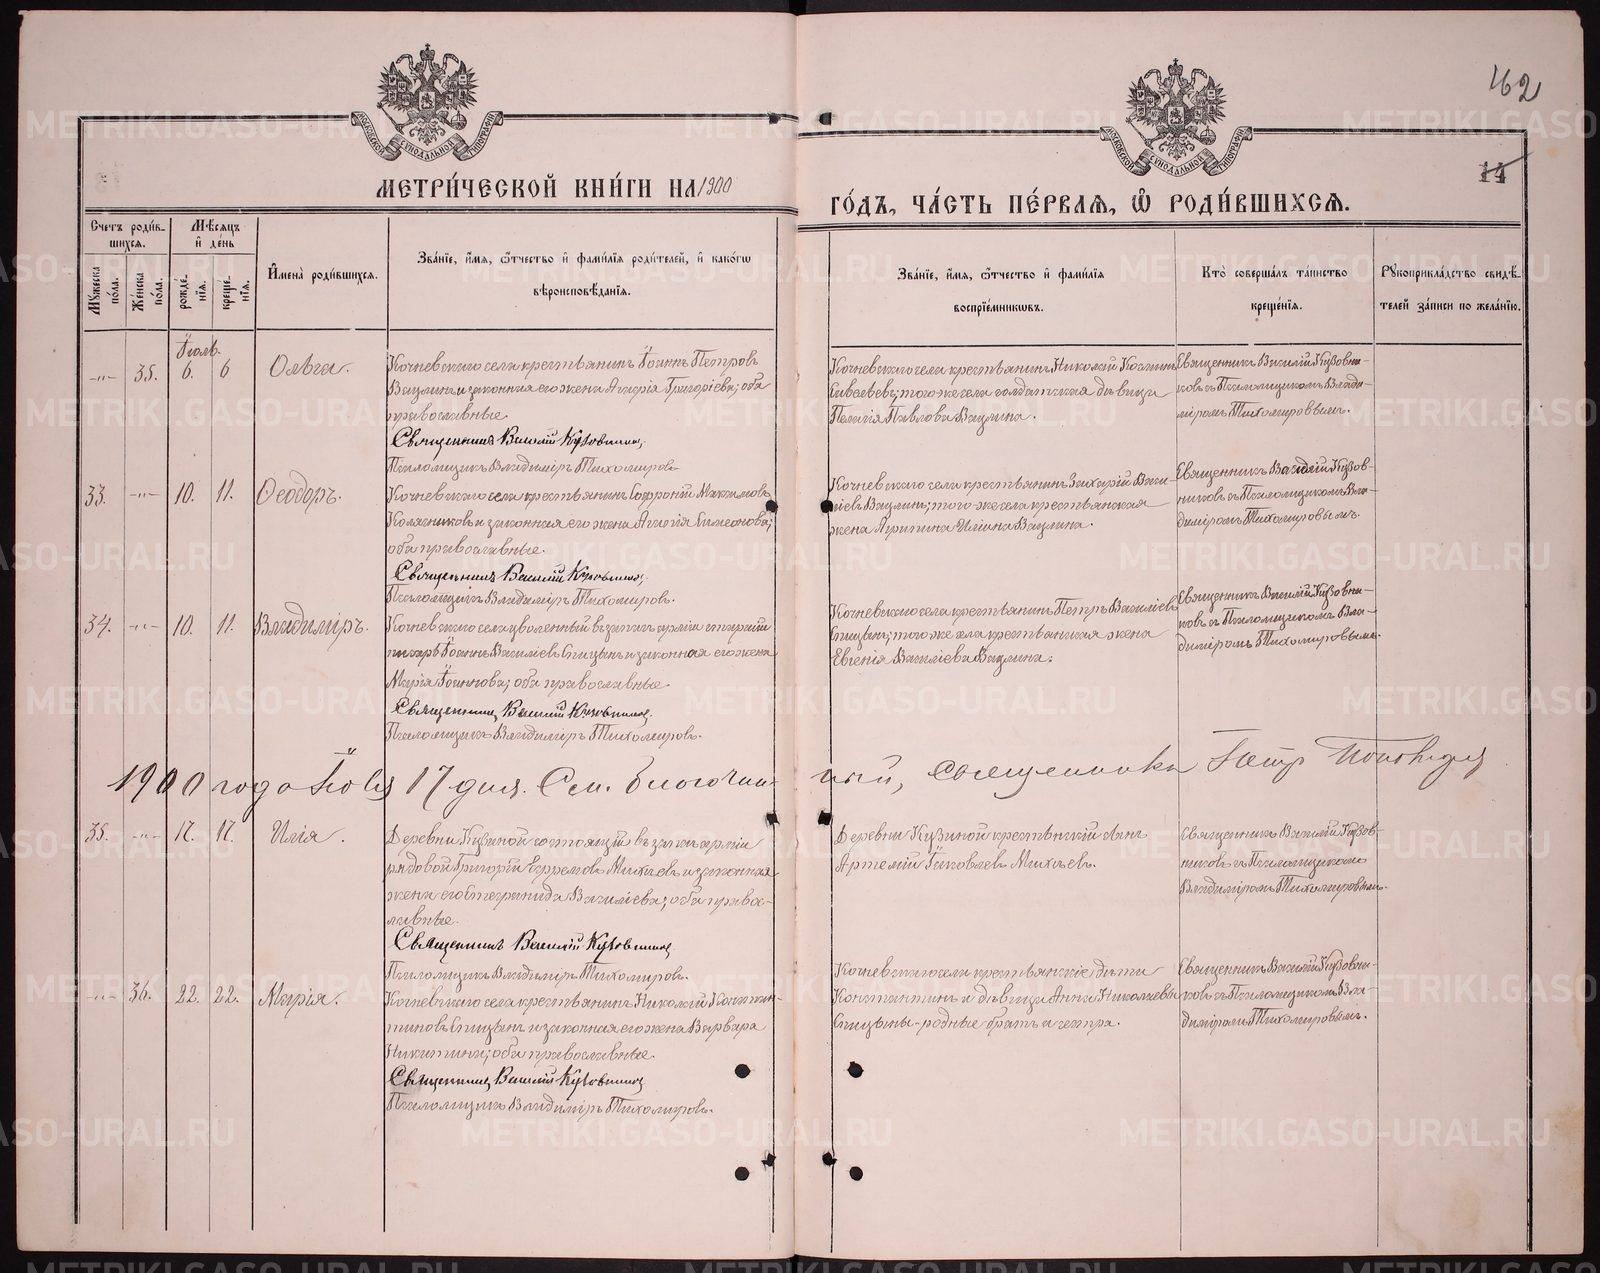 462
14
МОСКОВСКОЙ СѴНОДАЛЬНОЙ ТИПОГРАФІИ
МОСКОВСКОЙ СѴНОДАЛЬНОЙ ТИПОГРАФІИ
МЕТРИ́ЧЕСКОЙ КНИ́ГИ НА 1900
ГО́ДЪ, ЧА́СТЬ ПЕ́РВАѦ, Ѽ РОДИ́ВШИХСѦ.
Счетъ роди́в-
шихсѧ.
Мꙋ́жеска по́ла.
Же́нска по́ла.
Мѣ́сѧцъ
и҆ де́нь
рожде́-
нїѧ.
креще́-
нїѧ.
И҆мена̀ роди́вшихсѧ.
Зва́нїе, и҆́мѧ, ѻ҆́тчество и҆ фами́лїѧ роди́телей, и҆ како́гѡ
вѣроисповѣ́данїѧ.
Зва́нїе, и҆́мѧ, ѻ҆́тчество и҆ фами́лїѧ
воспрїе́мникѡвъ.
Кто̀ соверша́лъ та́инство
креще́нїѧ.
Рꙋкоприкла́дство свидѣ́-
телей за́писи по жела́нїю.
Іюль.
-"- 35. 6. 6 Ольга.
Кочневскаго села крестьянинъ Іоаннъ Петровъ
Вацлинъ и законная его жена Агафія Григоріева; оба
православные.
Священникъ Василій Кузовниковъ,
Псаломщикъ Владиміръ Тихомировъ.
Кочневскаго села крестьянинъ Николай Козьминъ
Сивсевъ; того же села солдатская дѣвица
Пелагія Павлова Вацлина.
Священникъ Василій Кузовни-
ковъ съ Псаломщикомъ Влади-
міромъ Тихомировымъ.
33. -"- 10. 11. Ѳеодоръ.
Кочневскаго села крестьянинъ Софроній Максимовъ
Колясниковъ и законная его жена Агафія Симеонова;
оба православные.
Священникъ Василій Кузовниковъ,
Псаломщикъ Владиміръ Тихомировъ.
Кочневскаго села крестьянинъ Захарій Васи-
ліевъ Вацлинъ; того же села крестьянская
жена Агрипина Иліина Вацлина.
Священникъ Василій Кузов-
никовъ съ Псаломщикомъ Вла-
диміромъ Тихомировымъ.
34. -"- 10. 11. Владиміръ.
Кочневскаго села уволенный въ запасъ арміи старшій
писарь Іоаннъ Василіевъ Спицынъ и законная его жена
Марія Іоаннова; оба православные.
Священникъ Василій Кузовниковъ.
Псаломщикъ Владиміръ Тихомировъ.
Кочневскаго села крестьянинъ Петръ Василіевъ
Спицынъ; того же села крестьянская жена
Евгенія Василіева Вацлина.
Священникъ Василій Кузовни-
ковъ съ Псаломщикомъ Вла-
диміромъ Тихомировымъ.
1900 года Іюля 17 дня. См. благочинный, священникъ Петръ
35. -"- 17. 17. Илія.
Деревни Кузиной состоящій въ запасѣ арміи
рядовой Григорій Ефремовъ Михѣевъ и законная
жена его Стефанида Василіева; оба правос-
лавные.
Священникъ Василій Кузовниковъ
Псаломщикъ Владиміръ Тихомировъ.
Деревни Кузиной крестьянскій сынъ
Артемій Іаковлевъ Михѣевъ.
Священникъ Василій Кузов-
никовъ съ Псаломщикомъ
Владиміромъ Тихомировымъ.
-"- 36. 22. 22. Марія.
Кочневскаго села крестьянинъ Николай Констан-
тиновъ Спицынъ и законная его жена Варвара
Никитина; оба православные.
Священникъ Василій Кузовниковъ
Псаломщикъ Владиміръ Тихомировъ.
Кочневскаго села крестьянскіе дѣти
Константинъ и дѣвица Анна Николаевы
Спицыны - родные братъ и сестра.
Священникъ Василій Кузовни-
ковъ съ Псаломщикомъ Вла-
диміромъ Тихомировымъ.
METRIKI.GASO-URAL.RU